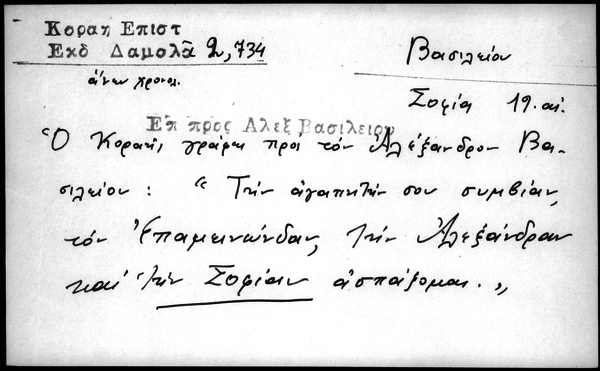 Κοραη Επιστ
Εκδ Δαμαλᾶ 2,734
ἄνευ χρονολ.
Βασιλείου
Σοφία 19. αἰ.
Επ προς Αλεξ Βασιλειου
Ὁ Κοραῆς γράφει πρὸς τὸν Ἀλέξανδρον Βα-
σιλείου : " Τὴν ἀγαπητήν σου συμβίαν,
τὸν Ἐπαμεινώνδαν, τὴν Ἀλεξάνδραν
καὶ τὴν Σοφίαν ἀσπάζομαι. "